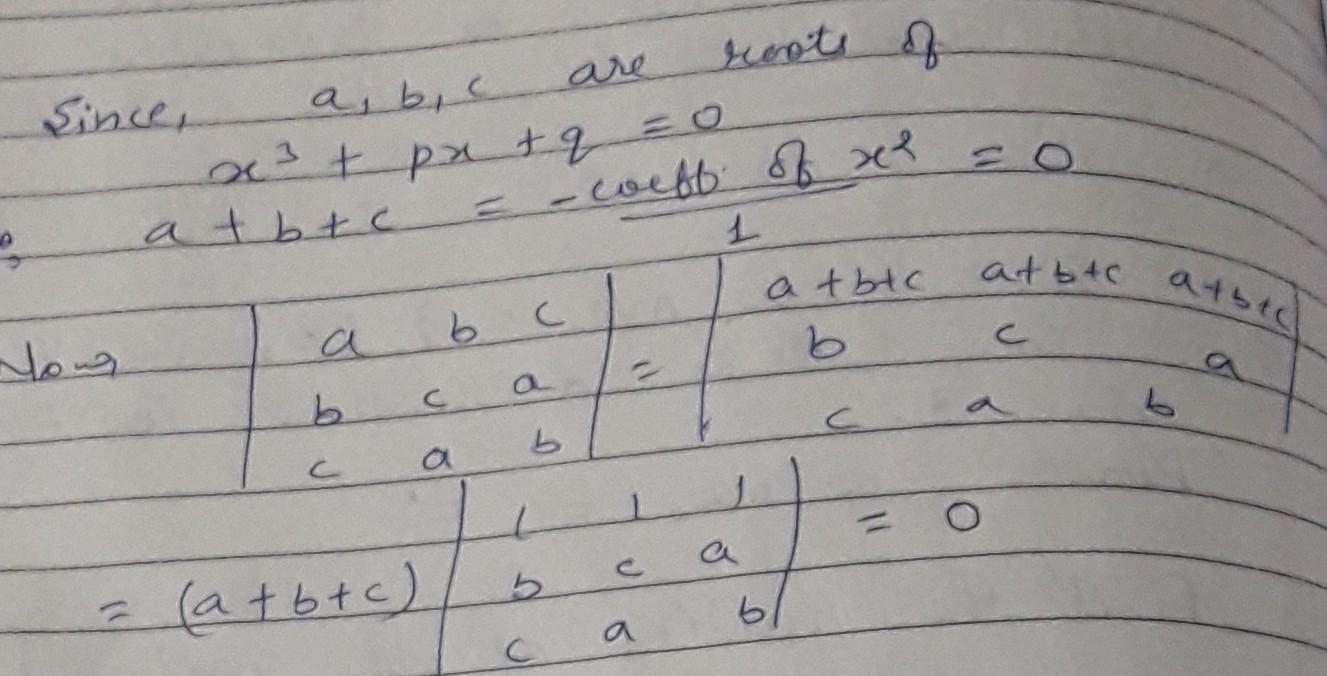 Since, a, b, c are roots of
x³ + px + q = 0
∴ a + b + c = -coeff. of x² / 1 = 0
Now | a b c | = | a+b+c a+b+c a+b+c |
| b c a | | b c a |
| c a b | | c a b |
= (a+b+c) | 1 1 1 | = 0
| b c a |
| c a b |